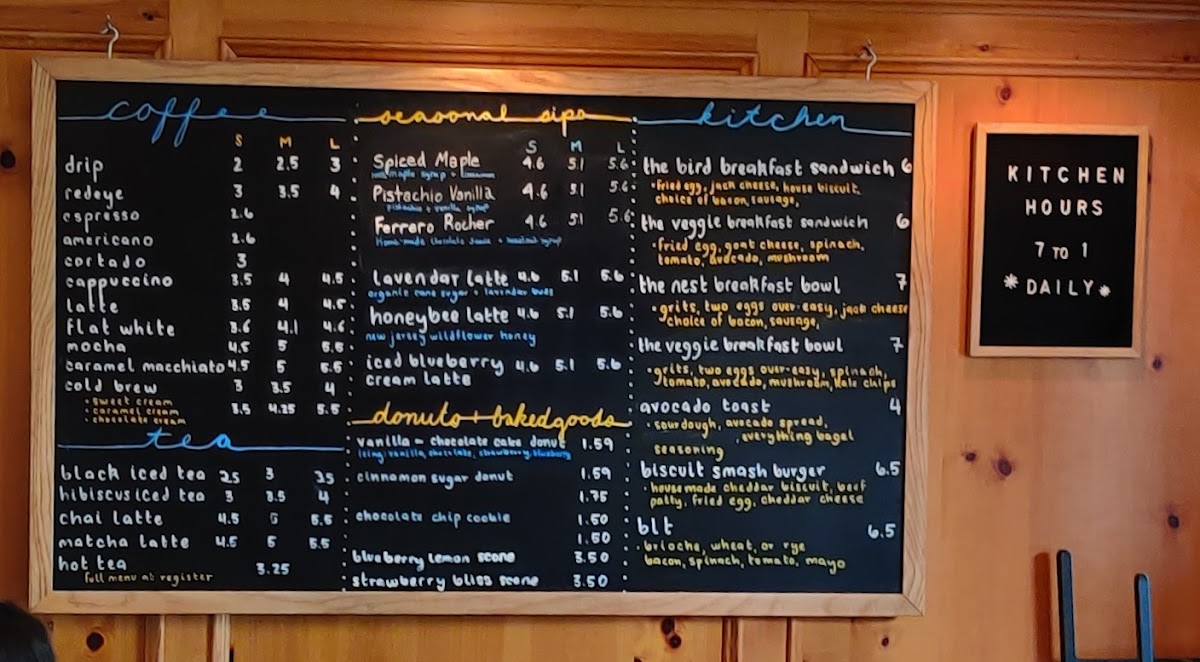 coffee
S M L
drip 2 2.5 3
redeye 3 3.5 4
espresso 2.6
americano 2.6
cortado 3
cappuccino 3.5 4 4.5
latte 3.5 4 4.5
flat white 3.6 4.1 4.6
mocha 4.5 5 5.5
caramel macchiato 4.5 5 5.5
cold brew 3 3.5 4
• sweet cream
• caramel cream 3.5 4.25 5.5
• chocolate cream
tea
black iced tea 2.5 3 3.5
hibiscus iced tea 3 3.5 4
chai latte 4.5 5 5.5
matcha latte 4.5 5 5.5
hot tea 3.25
full menu at register
seasonal sips
S M L
Spiced Maple 4.6 5.1 5.6
maple syrup + cinnamon
Pistachio Vanilla 4.6 5.1 5.6
pistachio + vanilla syrup
Ferrero Rocher 4.6 5.1 5.6
home-made chocolate sauce + hazelnut syrup
lavendar latte 4.6 5.1 5.6
organic cane sugar + lavendar buds
honeybee latte 4.6 5.1 5.6
new jersey wildflower honey
iced blueberry 4.6 5.1 5.6
cream latte
donuts + baked goods
vanilla - chocolate cake donut 1.59
icing: vanilla, chocolate, strawberry, blueberry
cinnamon sugar donut 1.59
1.75
chocolate chip cookie 1.50
1.50
blueberry lemon scone 3.50
strawberry bliss scone 3.50
kitchen
the bird breakfast sandwich 6
• fried egg, jack cheese, house biscuit,
choice of bacon, sausage,
the veggie breakfast sandwich 6
• fried egg, goat cheese, spinach,
tomato, avocado, mushroom
the nest breakfast bowl 7
• grits, two eggs over-easy, jack cheese
choice of bacon, sausage,
the veggie breakfast bowl 7
• grits, two eggs over-easy, spinach,
tomato, avocado, mushroom, kale chips
avocado toast 4
• sourdough, avocado spread,
, everything bagel
seasoning
biscuit smash burger 6.5
• housemade cheddar biscuit, beef
patty, fried egg, cheddar cheese
blt 6.5
• brioche, wheat, or rye
bacon, spinach, tomato, mayo
KITCHEN
HOURS
7 TO 1
*DAILY*